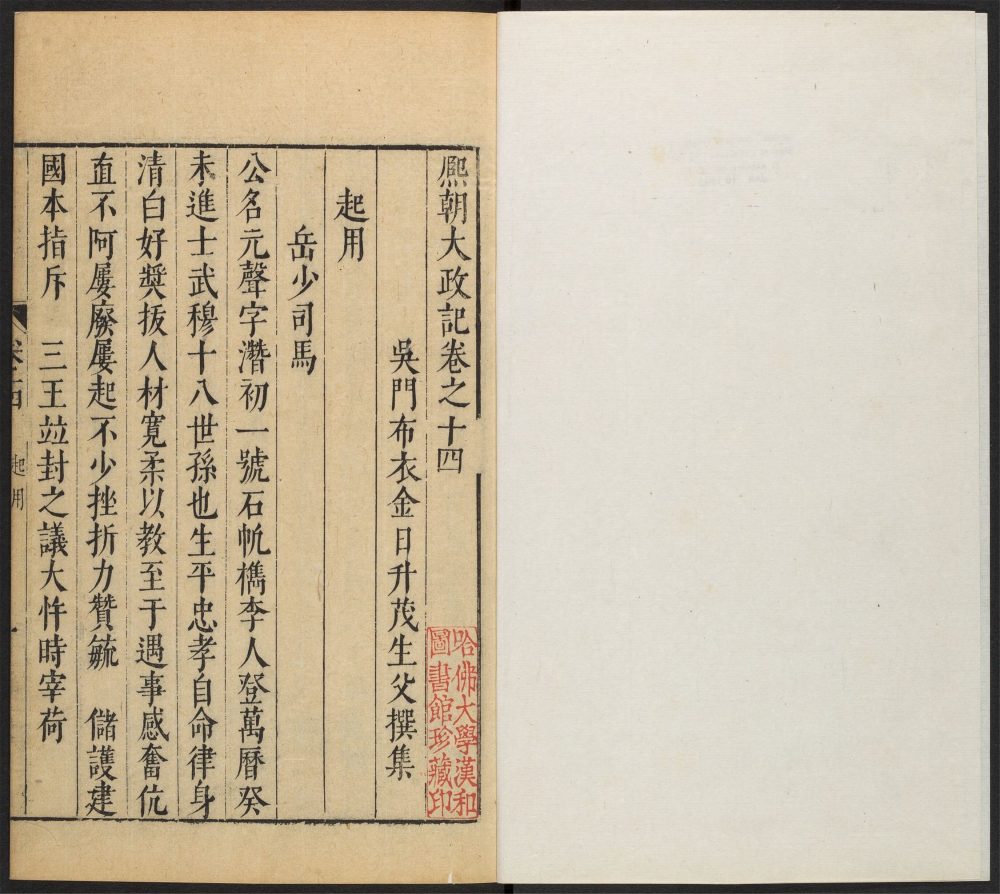 熈朝大政記卷之十四
吳門布衣金日升茂生父撰集
起用
岳少司馬
公名元聲字潛初一號石帆檇李人登萬曆癸
未進士武穆十八世孫也生平忠孝自命律身
清白好奬拔人材寬柔以教至于遇事感奮伉
直不阿屢廢屢起不少挫折力贊毓　儲護建
國本指斥　三王竝封之議大忤時宰荷
起用
哈佛大學漢和
圖書館珍藏印